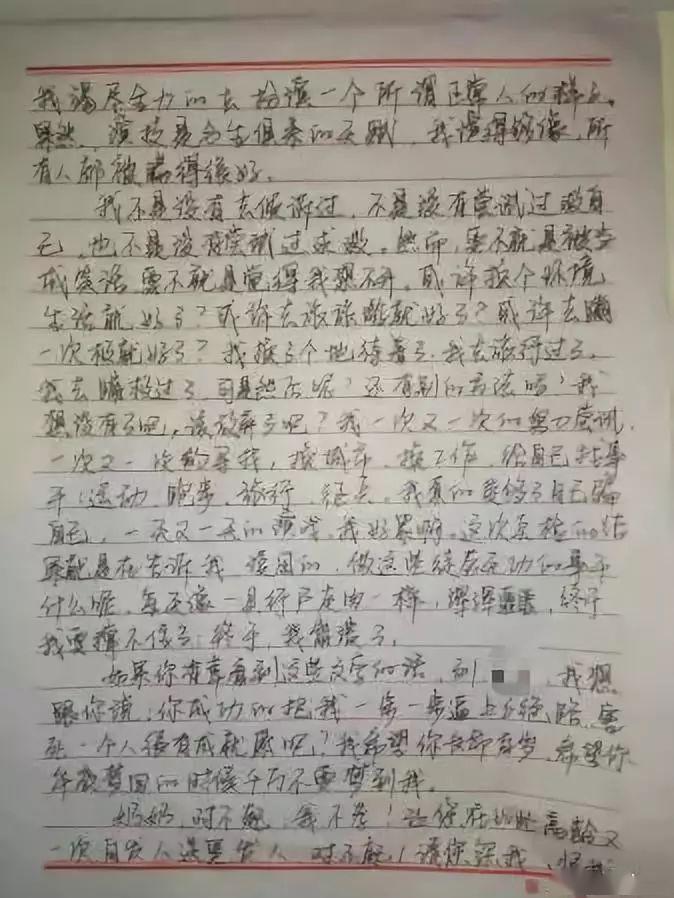 我竭尽全力的去扮演一个所谓正常人的样子。
果然，演技是与生俱来的天赋，我演得够像，所
有人都被骗得很好。
我不是没有去倾诉过，不是没有尝试过救自
己，也不是没有尝试过求救。然而，要不就是被当
成笑话要不就是觉得我想不开。或许换个环境
生活就好了？或许去旅旅游就好了？或许去蹦
一次极就好了？我换了个地待着了，我去旅行过了，
我去蹦极过了，可是然后呢？还有别的方法吗？我
想没有了吧，该放弃了吧？我一次又一次的努力尝试，
一次又一次的寻找，换城市、换工作、给自己找事
干：运动、跑步、旅行、。我真的受够了自己骗
自己，一天又一天的演戏，我好累啊。这次的结
果就是在告诉我没用的，做这些徒劳无功的事干
什么呢，每天像一具行尸走肉一样，浑浑噩噩，终于
我要撑不住了；终于，我了。
如果你有幸看到这些文字的话，刘，我想
跟你说：你成功的把我一步一步逼上了绝路，害
死一个人很有成就感吧？我希望你长命百岁，希望你
午夜梦回的时候千万不要梦到我。
奶奶，对不起，我不孝！让您在如此高龄又
一次白发人送黑发人，对不起！请您原谅我，